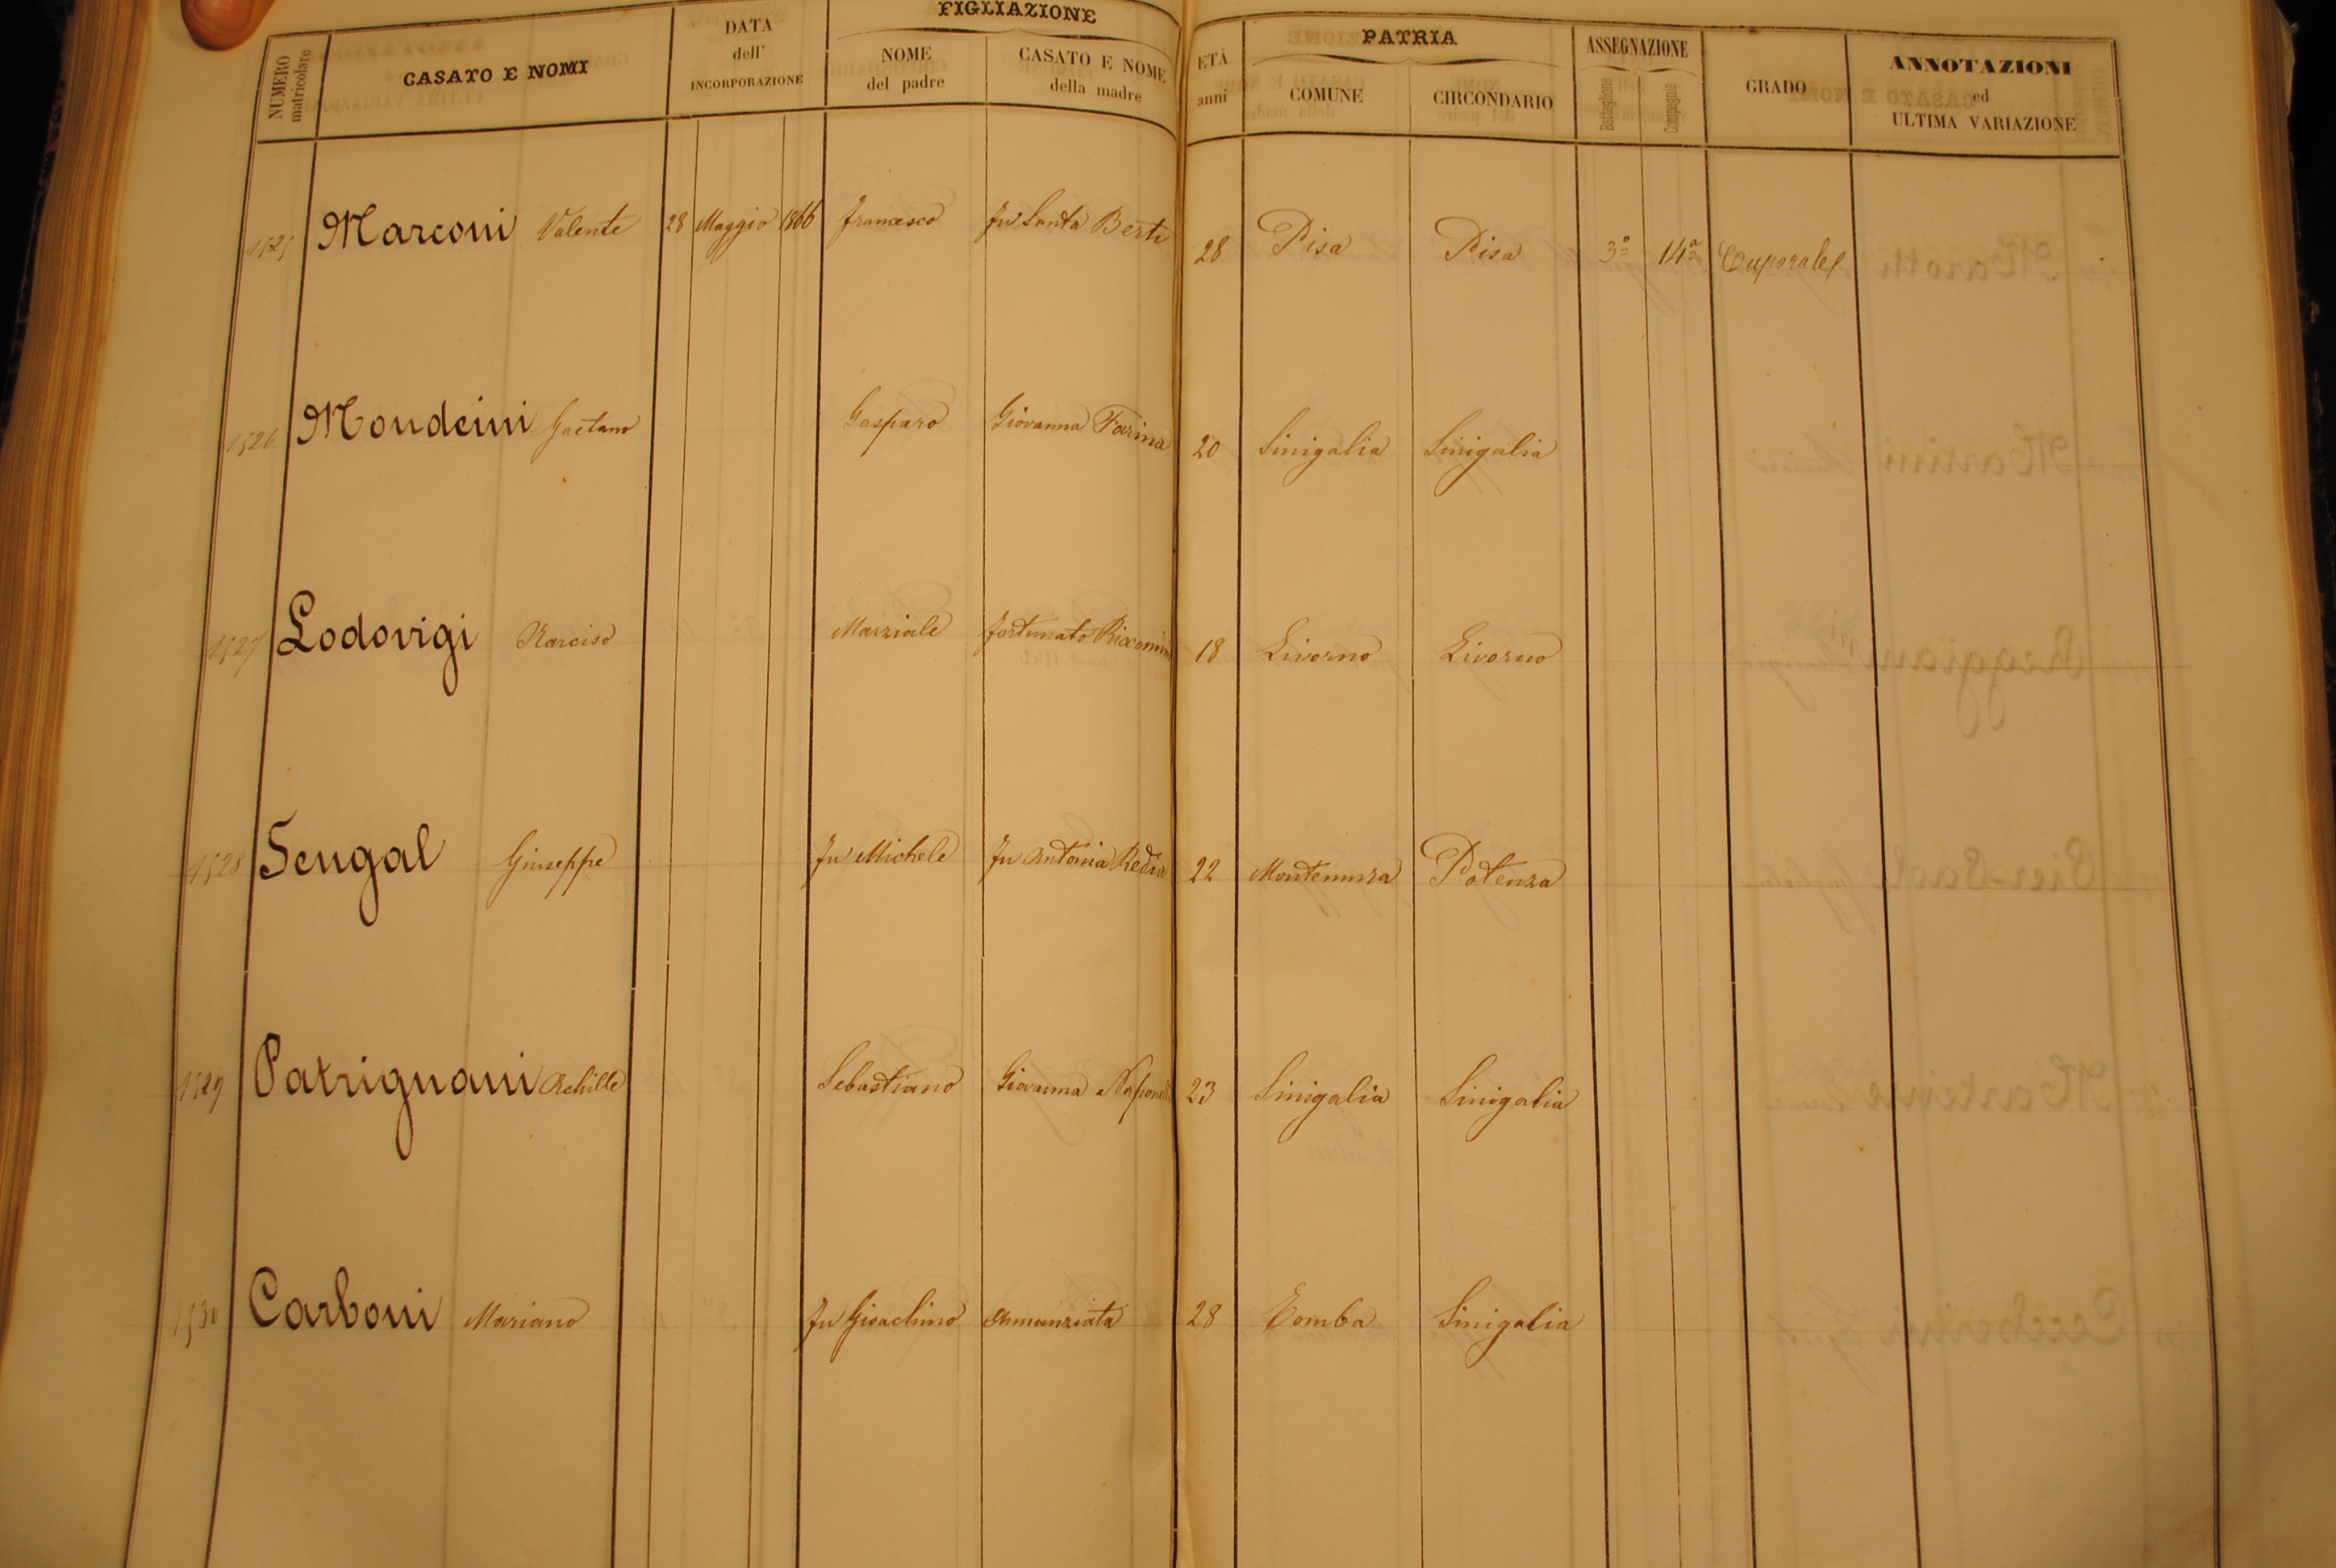 FIGLIAZIONE
PATRIA
ASSEGNAZIONE
NUMERO matricolare
CASATO E NOMI
DATA dell' INCORPORAZIONE
NOME del padre
CASATO E NOME della madre
ETÀ anni
COMUNE
CIRCONDARIO
Battaglione
Compagnia
GRADO
ANNOTAZIONI ed ULTIMA VARIAZIONE
1525 Marconi Valente 28 Maggio 1866 Francesco fu Santa Berti 28 Pisa Pisa 3º 14ª Caporale
1526 Mondeini Gaetano Gasparo Giovanna Farina 20 Sinigalia Sinigalia
1527 Lodovigi Narciso Marziale Fortunato 18 Livorno Livorno
1528 Sengal Giuseppe fu Michele fu Antonia Redia 22 Potenza
1529 Patrignani Achille Sebastiano Giovanna 23 Sinigalia Sinigalia
1530 Carboni Mariano fu Gioachino Annunziata 28 Tomba Sinigalia